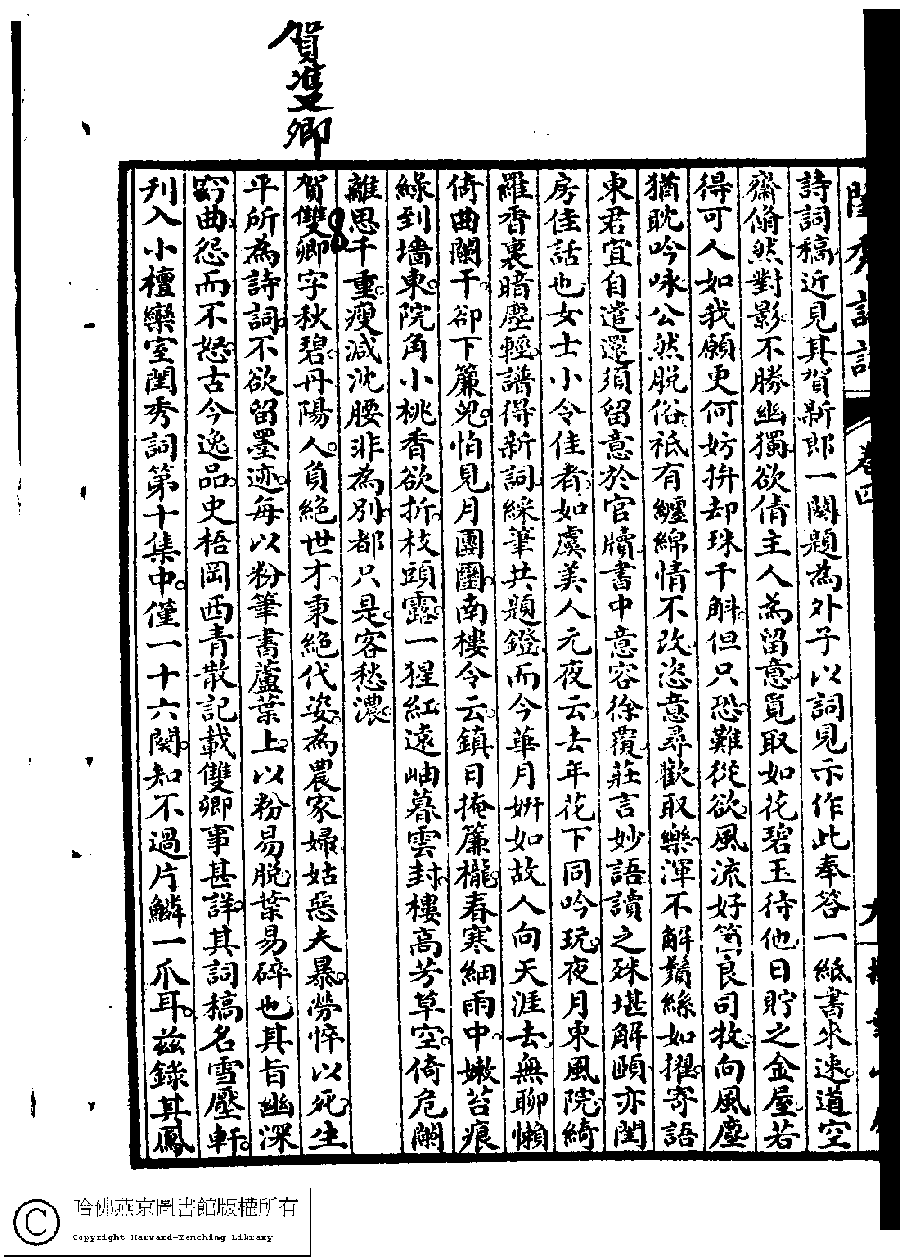 賀雙卿
閨秀詞話
卷四
詩詞稿近見其賀新郎一闋題為外子以詞見示作此奉答一紙書來速道空
齋翛然對影不勝幽獨欲倩主人為留意覓取如花碧玉待他日貯之金屋若
得可人如我願更何妨拚却珠千斛但只恐難從欲風流好箇良司牧向風塵
猶耽吟咏公然脱俗祇有纏綿情不改恣意尋歡取樂渾不解鬚絲如擢寄語
東君宜自遣還須留意於官牘書中意容徐覆莊言妙語讀之殊堪解頤亦閨
房佳話也女士小令佳者如虞美人元夜云去年花下同吟玩夜月東風院綺
羅香裏暗塵輕譜得新詞綵筆共題鐙而今華月妍如故人向天涯去無聊懶
倚曲闌干卻下簾兒怕見月團圞南樓令云鎮日掩簾櫳春寒細雨中嫩苔痕
綠到墻東院角小桃香欲折枝頭露一猩紅遠岫暮雲封樓高芳草空倚危闌
離思千重瘦減沈腰非為別都只是客愁濃
賀雙卿字秋碧丹陽人負絶世才秉絶代姿為農家婦姑惡夫暴勞悴以死生
平所為詩詞不欲留墨迹每以粉筆書蘆葉上以粉易脱葉易碎也其旨幽深
窈曲怨而不怒古今逸品史梧岡西青散記載雙卿事甚詳其詞稿名雪壓軒
刊入小檀欒室閨秀詞第十集中僅一十六闋知不過片鱗一爪耳茲錄其鳳
哈佛燕京圖書館版權所有
Copyright Harvard-Yenching Library